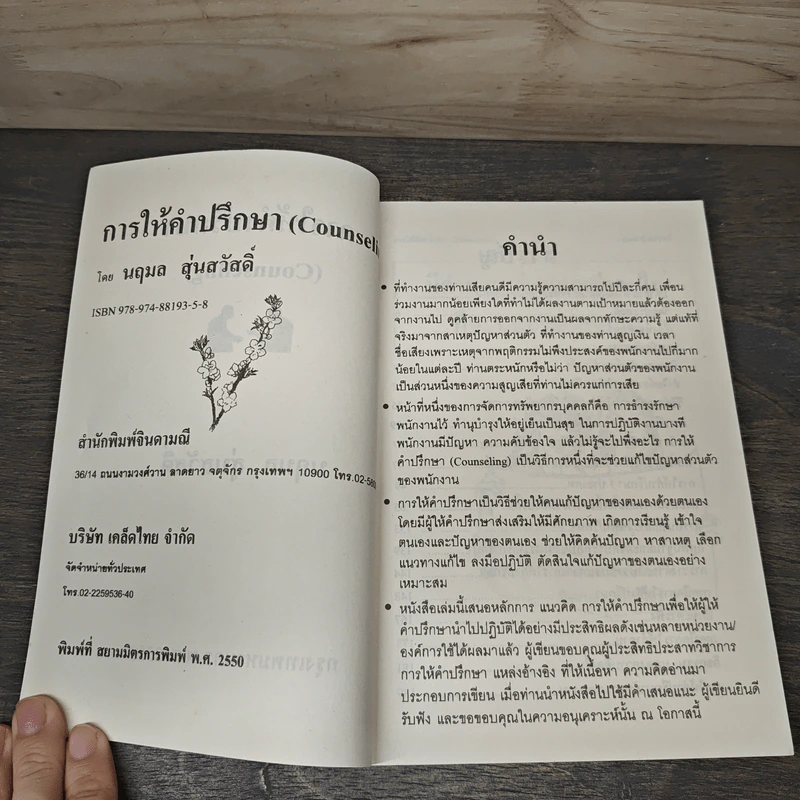 การให้คำปรึกษา (Counseli
โดย นฤมล สุ่นสวัสดิ์
ISBN 978-974-88193-5-8
สำนักพิมพ์จินดามณี
36/14 ถนนงามวงศ์วาน ลาดยาว จตุจักร กรุงเทพฯ 10900 โทร.02-580
บริษัท เคล็ดไทย จำกัด
จัดจำหน่ายทั่วประเทศ
โทร.02-2259536-40
พิมพ์ที่ สยามมิตรการพิมพ์ พ.ศ. 2550
คำนำ
• ที่ทำงานของท่านเสียคนดีมีความรู้ความสามารถไปปีละกี่คน เพื่อน
ร่วมงานมากน้อยเพียงใดที่ทำไม่ได้ผลงานตามเป้าหมายแล้วต้องออก
จากงานไป ดูคล้ายการออกจากงานเป็นผลจากทักษะความรู้ แต่แท้ที่
จริงมาจากสาเหตุปัญหาส่วนตัว ที่ทำงานของท่านสูญเงิน เวลา
ชื่อเสียงเพราะเหตุจากพฤติกรรมไม่พึงประสงค์ของพนักงานไปกี่มาก
น้อยในแต่ละปี ท่านตระหนักหรือไม่ว่า ปัญหาส่วนตัวของพนักงาน
เป็นส่วนหนึ่งของความสูญเสียที่ท่านไม่ควรแก่การเสีย
• หน้าที่หนึ่งของการจัดการทรัพยากรบุคคลก็คือ การธำรงรักษา
พนักงานไว้ ทำนุบำรุงให้อยู่เย็นเป็นสุข ในการปฏิบัติงานบางที
พนักงานมีปัญหา ความคับข้องใจ แล้วไม่รู้จะไปพึ่งอะไร การให้
คำปรึกษา (Counseling) เป็นวิธีการหนึ่งที่จะช่วยแก้ไขปัญหาส่วนตัว
ของพนักงาน
• การให้คำปรึกษาเป็นวิธีช่วยให้คนแก้ปัญหาของตนเองด้วยตนเอง
โดยมีผู้ให้คำปรึกษาส่งเสริมให้มีศักยภาพ เกิดการเรียนรู้ เข้าใจ
ตนเองและปัญหาของตนเอง ช่วยให้คิดค้นปัญหา หาสาเหตุ เลือก
แนวทางแก้ไข ลงมือปฏิบัติ ตัดสินใจแก้ปัญหาของตนเองอย่าง
เหมาะสม
• หนังสือเล่มนี้เสนอหลักการ แนวคิด การให้คำปรึกษาเพื่อให้ผู้ให้
คำปรึกษานำไปปฏิบัติได้อย่างมีประสิทธิผลดังเช่นหลายหน่วยงาน/
องค์การใช้ได้ผลมาแล้ว ผู้เขียนขอบคุณผู้ประสิทธิประสาทวิชาการ
การให้คำปรึกษา แหล่งอ้างอิง ที่ให้เนื้อหา ความคิดอ่านมา
ประกอบการเขียน เมื่อท่านนำหนังสือไปใช้มีคำเสนอแนะ ผู้เขียนยินดี
รับฟัง และขอขอบคุณในความอนุเคราะห์นั้น ณ โอกาสนี้